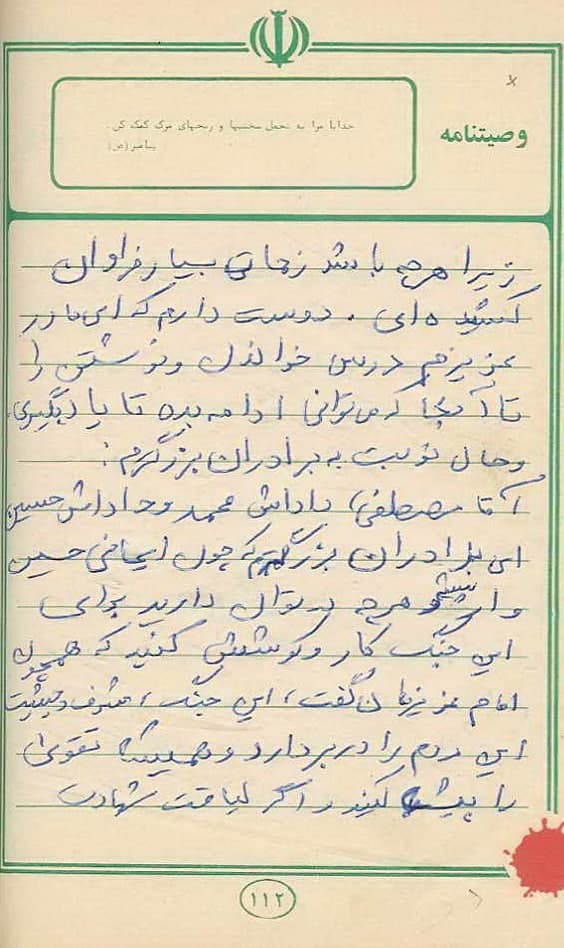 وصیتنامه
خدایا مرا به تحمل سختیها و رنجهای مرگ کمک کن.
پیامبر(ص)
زیرا هرچه باشد زحمات بسیار فراوان
کشیده ای . دوست دارم که ای مادر
عزیزم درس خواندن و نوشتن را
تا آنجا که می‌توانی ادامه بده تا یادبگیری.
و حال نوبت به برادران بزرگترم :
آقا مصطفی، داداش محمد و داداش حسین
ای برادران بزرگترم که چون ایمانی حسین
وار هرچه در توان دارید برای
این جنگ کار و کوشش کنید که همچون
امام عزیزمان گفت، این جنگ، شرف و حیثیت
این مردم را در بردارد و همیشه تقوی
را پیشه کنید و اگر لیاقت شهادت
۱۱۲